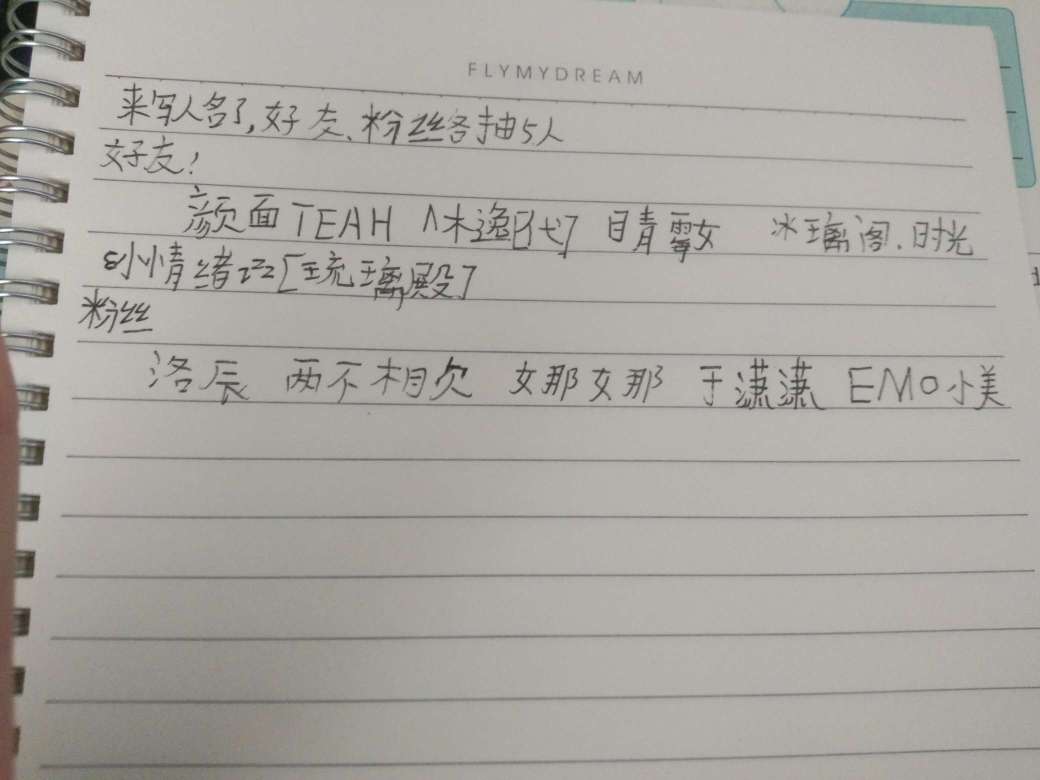 FLYMYDREAM
来写人名了,好友、粉丝各抽5人
好友:
颜面TEAH 木逸 晴霎女 冰璃阁.时光
小情绪zzz[琉璃殿]
粉丝
洛辰 两不相欠 女那女那 于潇潇 EMO小美